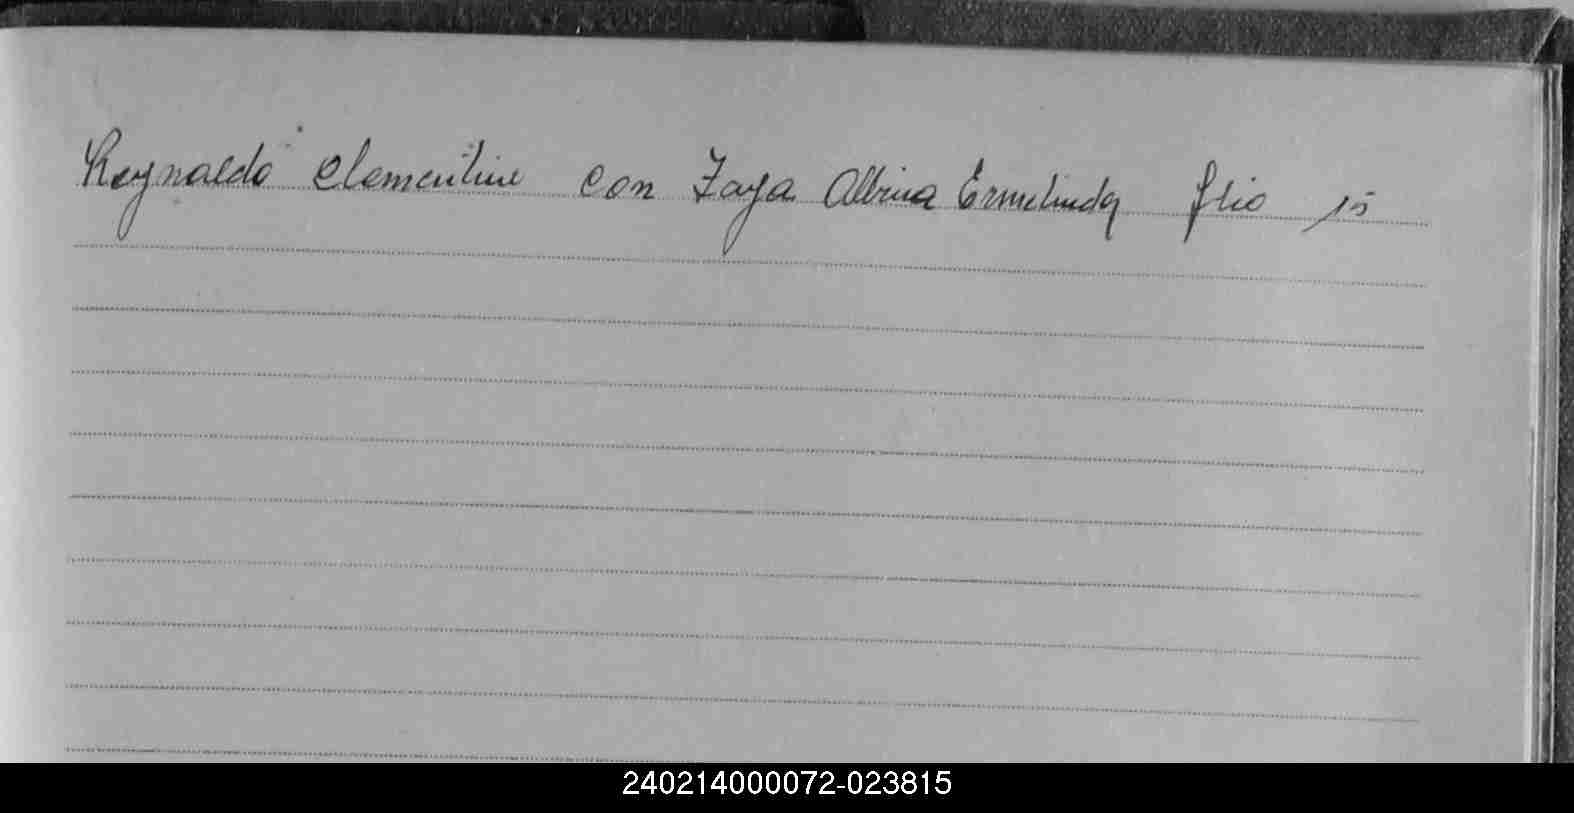 Reynaldo Clementine con Zaya Albina Ermelinda flio 15
240214000072-023815